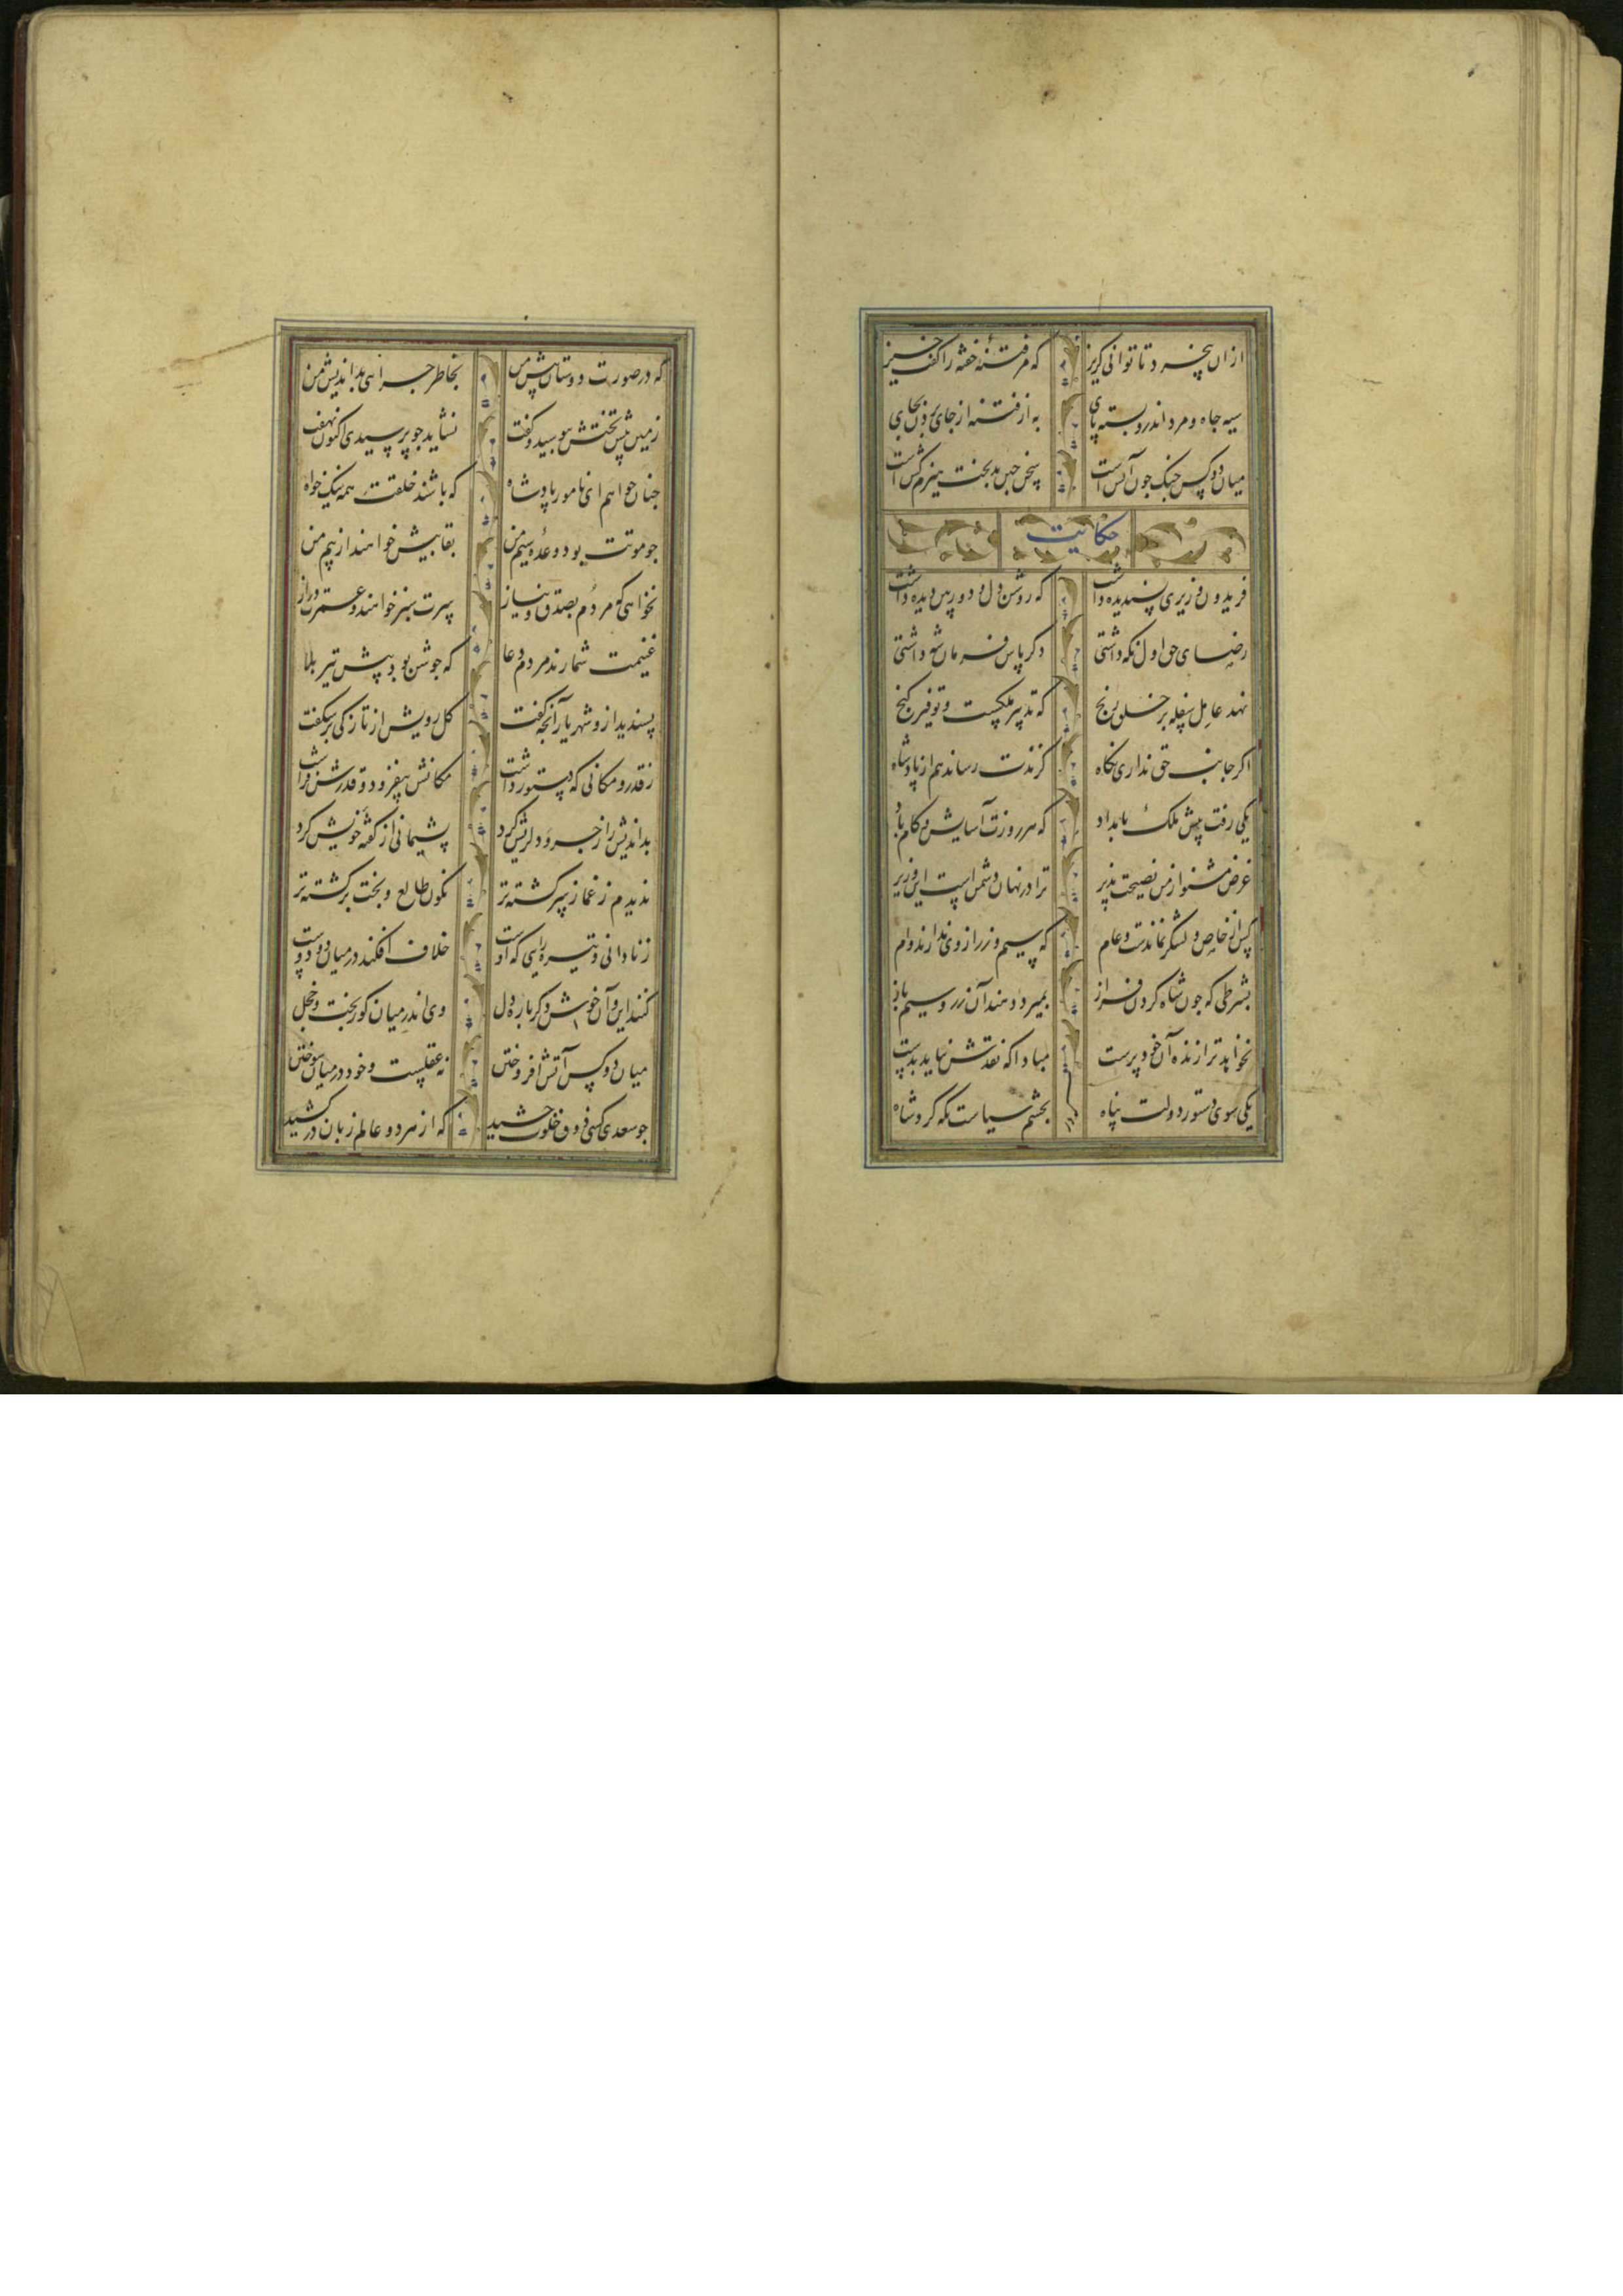 ازان همنشین تا توانی کریز که مر فتنهٔ خفته را کفت خیز
سیه جاه و مرد اندرو بسته پای به از فتنه از جای بردن بجای
میان دو کس جنک جون آتش است سخن جین بدبخت هیزم کش است
حکایت
فریدون وزیری پسندیده داشت که روشن دل و دوربین دیده داشت
رضای حق اول نکه داشتی دکر پاس فرمان شه داشتی
نهد عامل سفله بر خلق رنج که تدبیر ملکست و توفیر کنج
اکر جانب حق نداری نکاه کزندت رساند هم از پادشاه
یکی رفت پیش ملک بامداد که هر روزت آسایش و کام باد
غرض مشنو از من نصیحت پذیر ترا در نهان دشمن است این وزیر
کس از خاص و لشکر نماندت و عام که سیم و زر از وی ندارند وام
بشرطی که جون شاه کردن فراز بمیرد دهند آن زر و سیم باز
نخواهد ترا زنده آن خودپرست مبادا که نقدش نیاید بدست
یکی سوی دستور دولت پناه بجشم سیاست نکه کرد شاه
که در صورت دوستان پیش من بخاطر جرائی بداندیش من
زمین پیش تختش ببوسید و کفت نشاید جو پرسیدی اکنون نهفت
جنان خواهم ای نامور پادشاه که باشند خلقت همه نیک خواه
جو موتت بود وعدهٔ سیم من بقا بیش خواهند از بیم من
نخواهی که مردم بصدق و نیاز سرت سبز خواهند و عمرت دراز
غنیمت شمارند مردم دعا که جوشن بود پیش تیر بلا
پسندید ازو شهریار آنجه کفت کل رویش از تازکی برشکفت
ز قدر و مکانی که دستور داشت مکانش بیفزود و قدرش فراشت
بداندیش را زجر و دلریش کرد پشیمانی از کفتهٔ خویش کرد
ندیدم ز غماز سرکشته تر نکون طالع و بخت برکشته تر
ز نادانی و تیره رایی که اوست خلاف افکند در میان دو دوست
کنند این و آن خوش دکر باره دل وی اندر میان کوربخت و خجل
میان دو کس آتش افروختن نه عقلست و خود در میان سوختن
جو سعدی کسی ذوق خلوت جشید که از هر دو عالم زبان درکشید